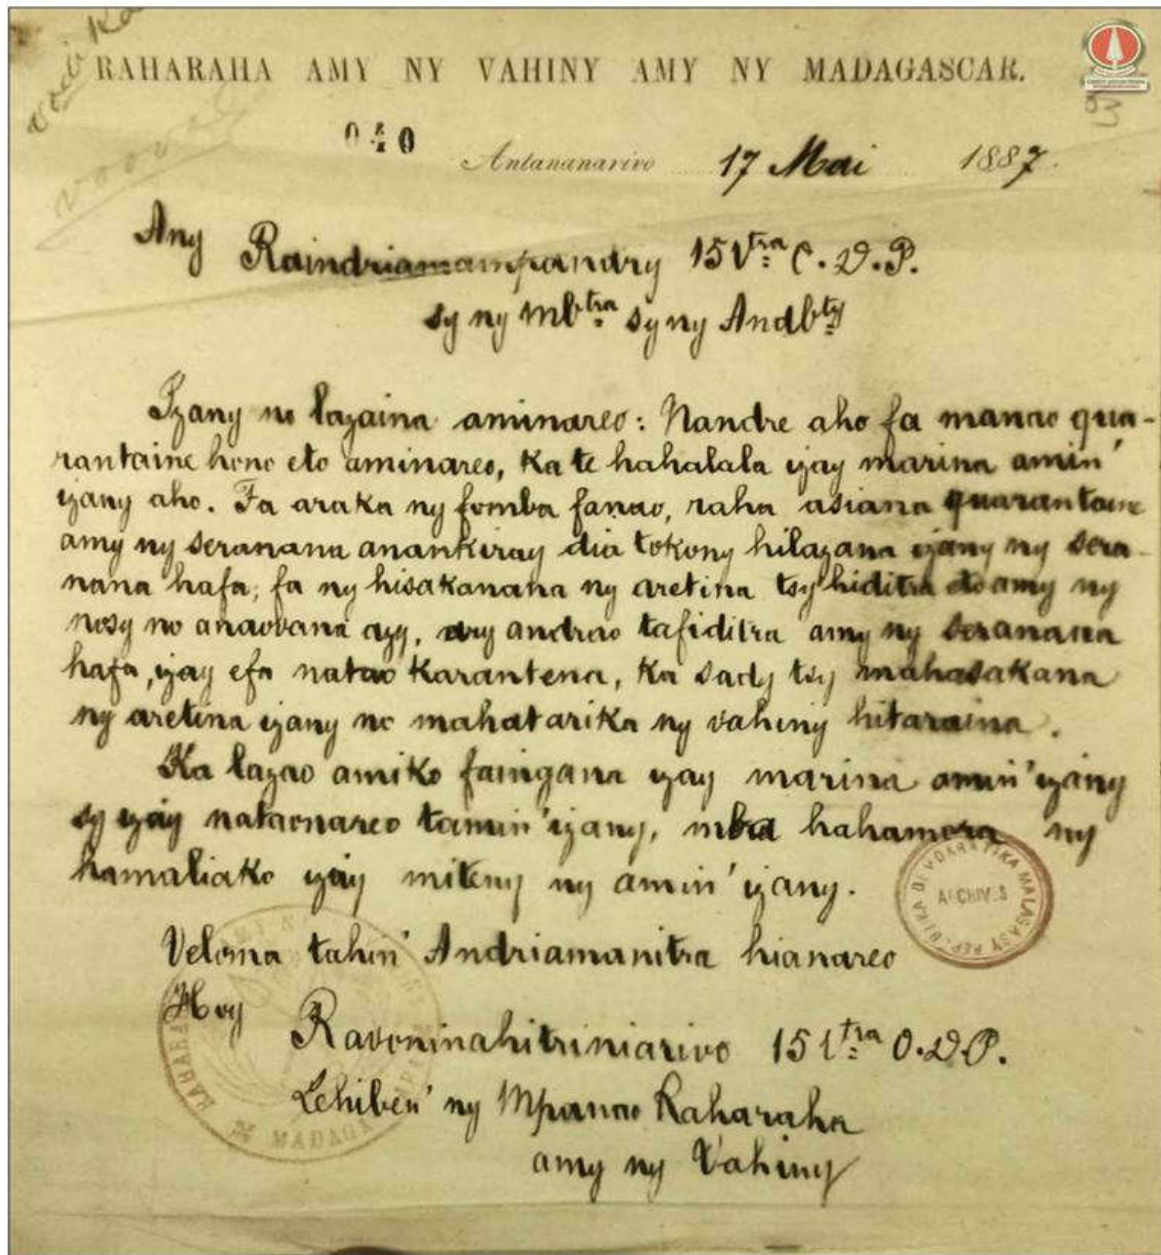 RAHARAHA AMY NY VAHINY AMY NY MADAGASCAR.
040
Antananarivo 17 Mai 1887.
Any Raindriamampandry 15 Vtra O.D.P.
sy ny Mbtra sy ny Andbty
Izany no lazaina aminareo: Nandre aho fa manao qua-
rantaine hono eto aminareo, ka te hahalala izay marina amin'
izany aho. Fa araka ny fomba fanao, raha asiana quarantaine
amy ny seranana anankiray dia tokony hilazana izany ny sera-
nana hafa; fa ny hisakanana ny aretina tsy hiditra eto amy ny
nosy no anaovana azy, ary andrao tafiditra amy ny seranana
hafa, izay efa natao karantena, ka sady tsy mahasakana
ny aretina izany no mahatarika ny vahiny hitaraina.
Ka lazao amiko faingana izay marina amin'izany
sy izay nataonareo tamin'izany, mba hahamora ny
hamaliako izay miteny ny amin'izany.
Veloma tahin' Andriamanitra hianareo
Hoy
Ravoninahitriniarivo 15 Vtra O.D.P.
Lehiben' ny Mpanao Raharaha
amy ny Vahiny
ARCHIVES